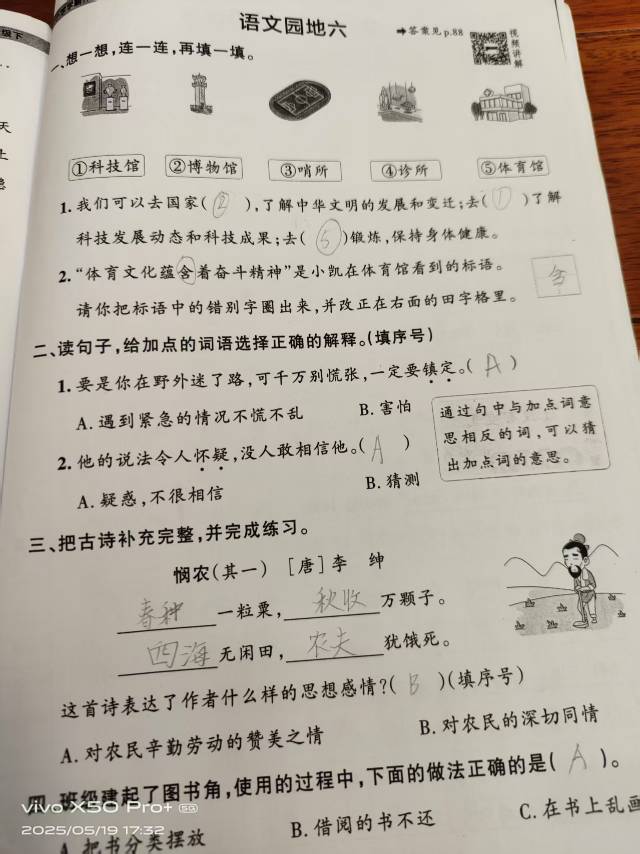 语文园地六
➡答案见p.88
视频讲解
一、想一想,连一连,再填一填。
①科技馆 ②博物馆 ③哨所 ④诊所 ⑤体育馆
1.我们可以去国家( ② ),了解中华文明的发展和变迁;去( ① )了解
科技发展动态和科技成果;去( ⑤ )锻炼,保持身体健康。
2.“体育文化蕴含着奋斗精神”是小凯在体育馆看到的标语。
请你把标语中的错别字圈出来,并改正在右面的田字格里。
含
二、读句子,给加点的词语选择正确的解释。(填序号)
1.要是你在野外迷了路,可千万别慌张,一定要镇定。( A )
A.遇到紧急的情况不慌不乱 B.害怕
2.他的说法令人怀疑,没人敢相信他。( A )
A.疑惑,不很相信 B.猜测
通过句中与加点词意
思相反的词,可以猜
出加点词的意思。
三、把古诗补充完整,并完成练习。
悯农(其一) [唐]李 绅
春种一粒粟,秋收万颗子。
四海无闲田,农夫犹饿死。
这首诗表达了作者什么样的思想感情?( B )(填序号)
A.对农民辛勤劳动的赞美之情 B.对农民的深切同情
四、班级建起了图书角,使用的过程中,下面的做法正确的是( A )。
A.把书分类摆放 B.借阅的书不还 C.在书上乱画
vivo X50 Pro+ 5G
2025/05/19 17:32